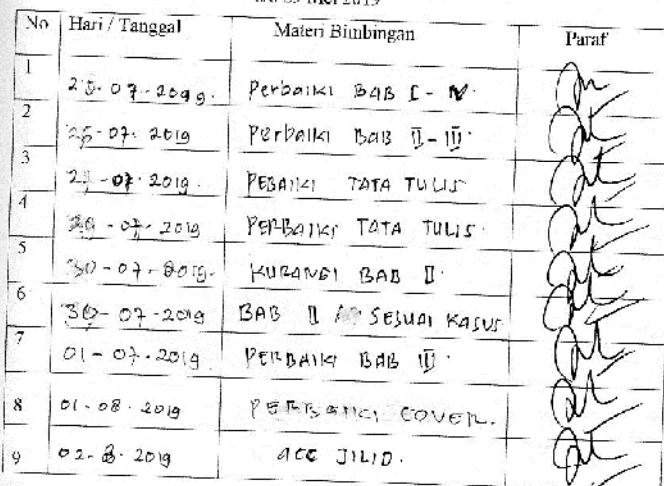 Mei 2019
No Hari / Tanggal Materi Bimbingan Paraf
1 25-07-2099. Perbaiki BAB I - IV.
2 25-07-2019 Perbaiki BAB II - III.
3 07-2019. PEBAIKI TATA TULIS
4 29-07-2019 PERBAIKI TATA TULIS.
5 30-07-2019. KURANGI BAB II.
6 30-07-2019 BAB II SESUAI KASUS
7 01-07-2019 PERBAIKI BAB III.
8 01-08-2019 PERBAIKI COVER.
9 02-8-2019 ACC JILID.